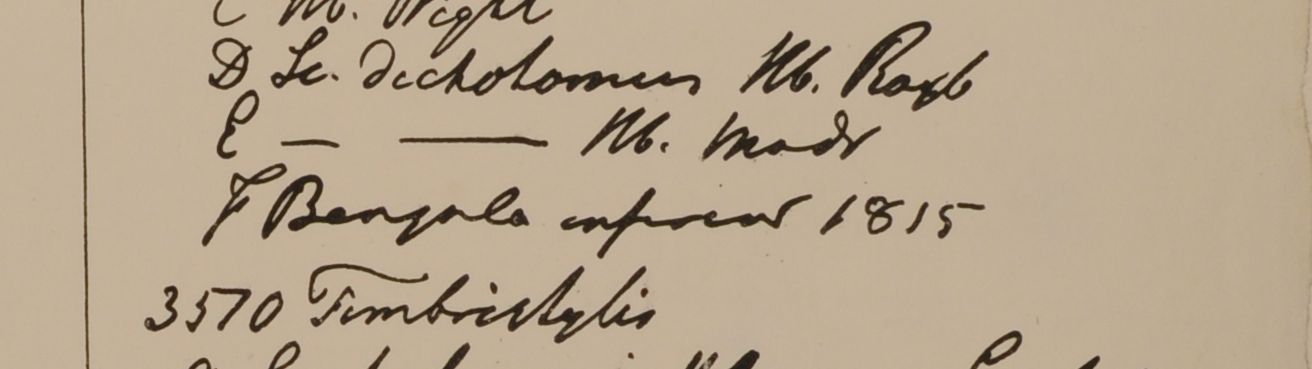 C Hb. Wight
D Sc. dichotomus Hb. Roxb
E — — Hb. Madr
F Bengala inferior 1815
3570 Fimbristylis